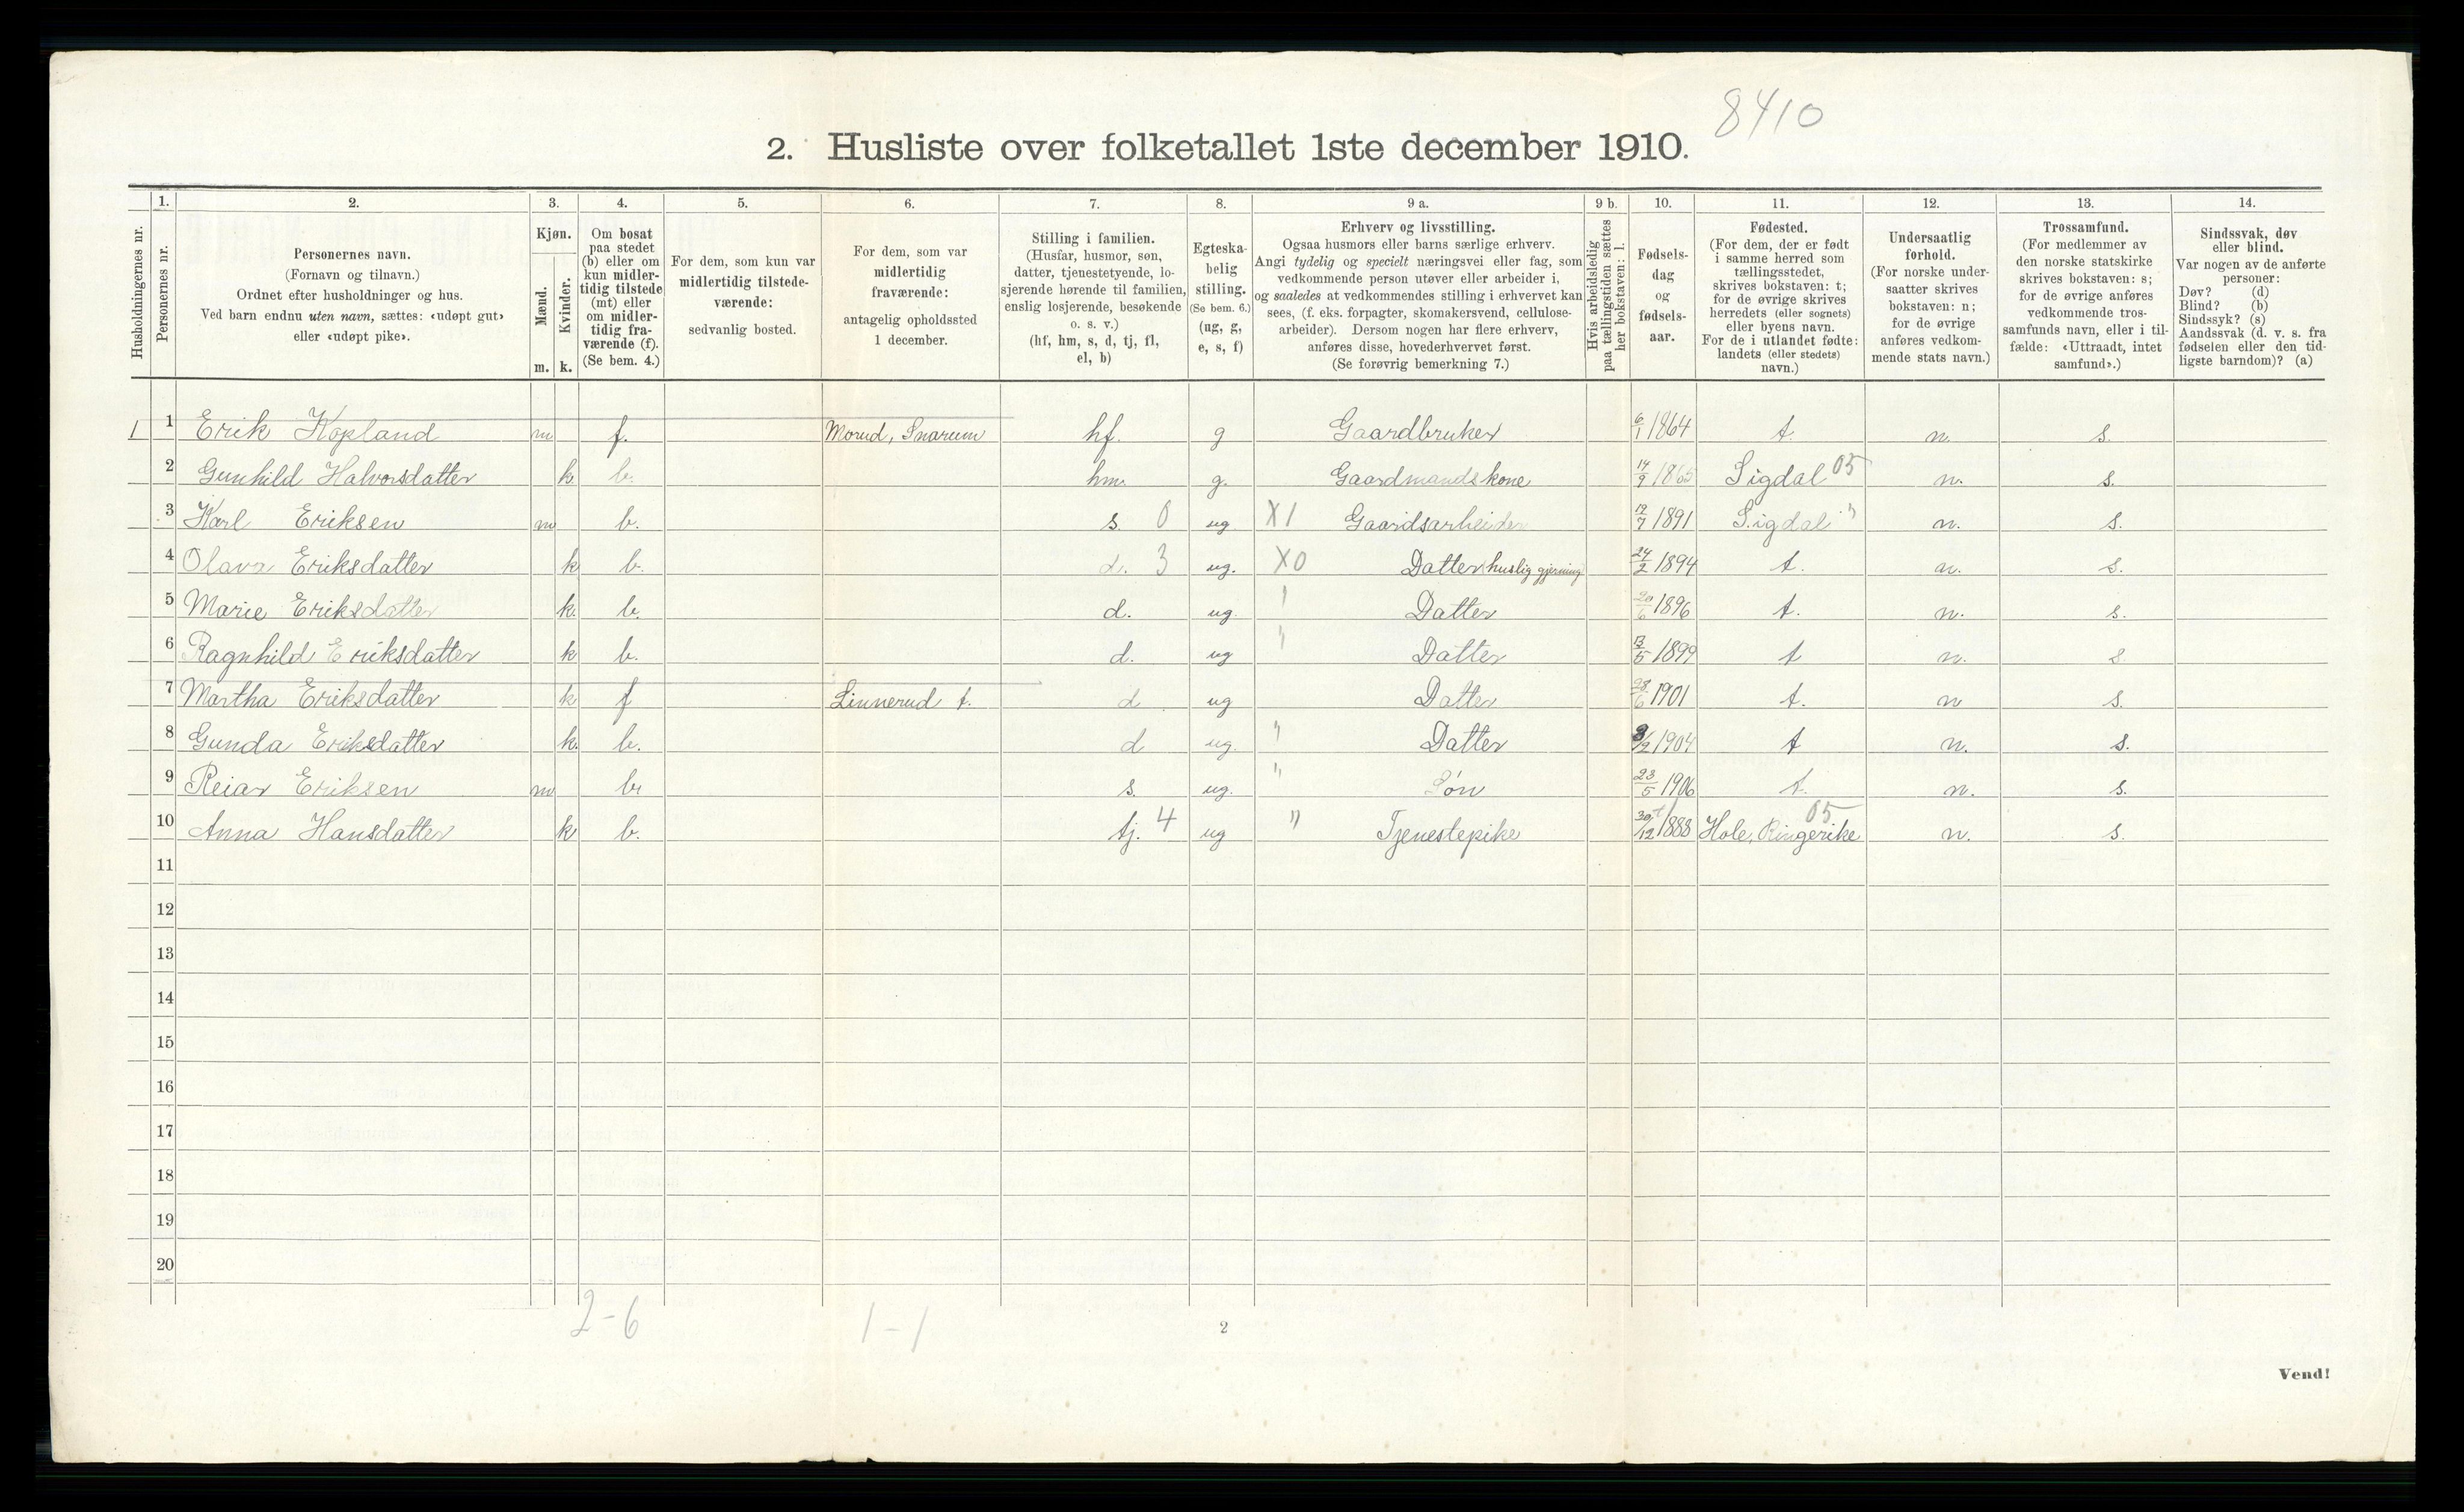 8410
2. Husliste over folketallet 1ste december 1910.
Husholdningernes nr.
1. Personernes nr.
2. Personernes navn.
(Fornavn og tilnavn.)
Ordnet efter husholdninger og hus.
Ved barn endnu uten navn, sættes: «udøpt gut»
eller «udøpt pike».
3. Kjøn.
Mænd. m.
Kvinder. k.
4. Om bosat
paa stedet
(b) eller om
kun midler-
tidig tilstede
(mt) eller
om midler-
tidig fra-
værende (f).
(Se bem. 4.)
5. For dem, som kun var
midlertidig tilstede-
værende:
sedvanlig bosted.
6. For dem, som var
midlertidig
fraværende:
antagelig opholdssted
1 december.
7. Stilling i familien.
(Husfar, husmor, søn,
datter, tjenestetyende, lo-
sjerende hørende til familien,
enslig losjerende, besøkende
o. s. v.)
(hf, hm, s, d, tj, fl,
el, b)
8. Egteska-
belig
stilling.
(Se bem. 6.)
(ug, g,
e, s, f)
9 a. Erhverv og livsstilling.
Ogsaa husmors eller barns særlige erhverv.
Angi tydelig og specielt næringsvei eller fag, som
vedkommende person utøver eller arbeider i,
og saaledes at vedkommendes stilling i erhvervet kan
sees, (f. eks. forpagter, skomakersvend, cellulose-
arbeider). Dersom nogen har flere erhverv,
anføres disse, hovederhvervet først.
(Se forøvrig bemerkning 7.)
9 b. Hvis arbeidsledig
paa tællingstiden sættes
her bokstaven: l.
10. Fødsels-
dag
og
fødsels-
aar.
11. Fødested.
(For dem, der er født
i samme herred som
tællingsstedet,
skrives bokstaven: t;
for de øvrige skrives
herredets (eller sognets)
eller byens navn.
For de i utlandet fødte:
landets (eller stedets)
navn.)
12. Undersaatlig
forhold.
(For norske under-
saatter skrives
bokstaven: n;
for de øvrige
anføres vedkom-
mende stats navn.)
13. Trossamfund.
(For medlemmer av
den norske statskirke
skrives bokstaven: s;
for de øvrige anføres
vedkommende tros-
samfunds navn, eller i til-
fælde: «Uttraadt, intet
samfund».)
14. Sindssvak, døv
eller blind.
Var nogen av de anførte
personer:
Døv? (d)
Blind? (b)
Sindssyk? (s)
Aandssvak (d. v. s. fra
fødselen eller den tid-
ligste barndom)? (a)
1 1 Erik Kopland m f. Morud, Snarum hf. g Gaardbruker 6/1 1864 t. n. s.
2 Gunhild Halvorsdatter k b. hm. g. Gaardmandskone 14/9 1865 Sigdal 05 n. s.
3 Karl Eriksen m b. s. 0 ug X1 Gaardsarbeider 12/7 1891 Sigdal " n. s.
4 Olava Eriksdatter k b. d. 3 ug. X0 Datter huslig gjerning 24/2 1894 t. n. s.
5 Marie Eriksdatter k. b. d. ug. " Datter 20/6 1896 t. n. s.
6 Ragnhild Eriksdatter k b. d. ug " Datter 13/5 1899 t n. s
7 Martha Eriksdatter k f Linnerud t. d ug Datter 28/6 1901 t. n s.
8 Gunda Eriksdatter k. b. d ug. " Datter 1904 t n. s.
9 Reiar Eriksen m b. s. ug. " Søn 23/5 1906 t. n. s.
10 Anna Hansdatter k b. tj. 4 ug " Tjenestepike 30/12 1888 Hole, Ringerike 05 n. s.
11
12
13
14
15
16
17
18
19
20
2-6 1-1
2
Vend!